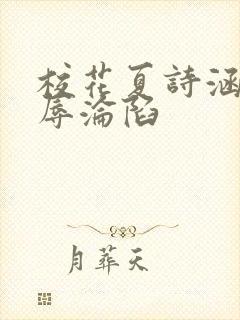 校花夏詩涵
辱淪陷
月葬天